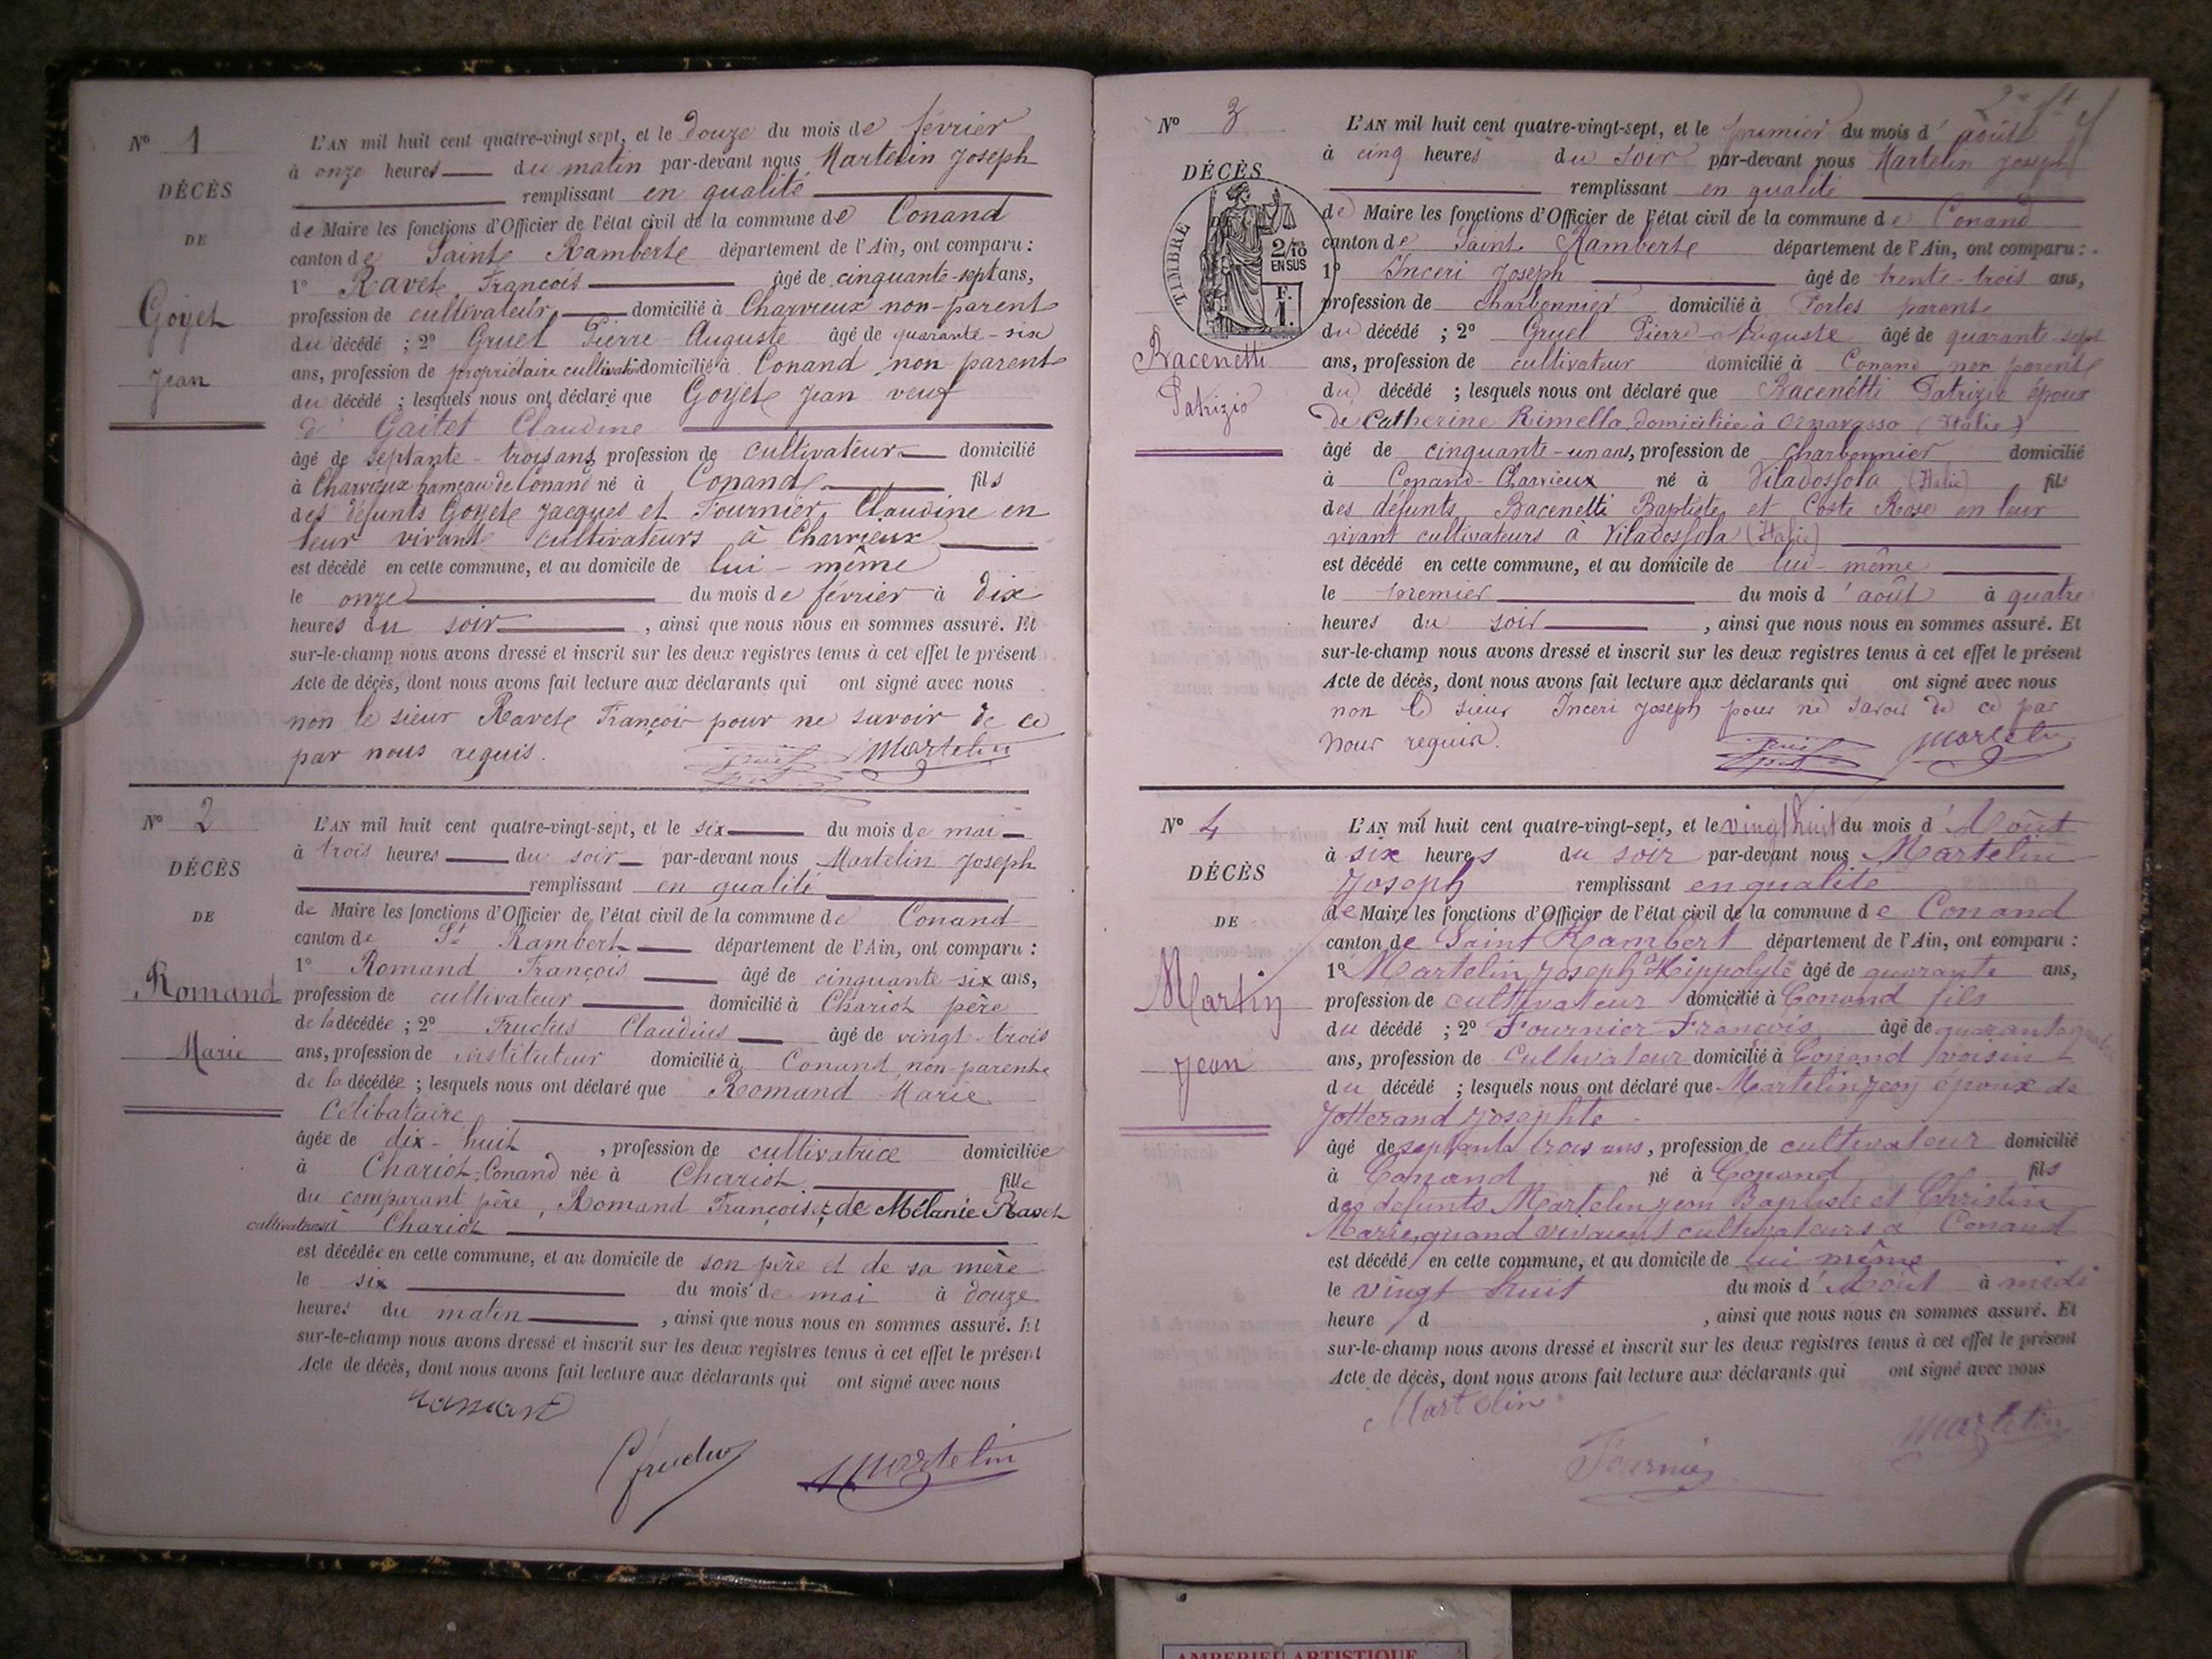 N° 1
DÉCÈS
DE
Goyet
Jean
L'AN mil huit cent quatre-vingt sept, et le douze du mois de février
à onze heures du matin par-devant nous Martelin Joseph
remplissant en qualité
de Maire les fonctions d'Officier de l'état civil de la commune de Conand
canton de Saint Ramberte département de l'Ain, ont comparu :
1° Ravet François âgé de cinquante-sept ans,
profession de cultivateur domicilié à Charvieux non-parent
du décédé ; 2° Gruel Pierre Auguste âgé de quarante-six
ans, profession de propriétaire cultivateur domicilié à Conand non parent
du décédé ; lesquels nous ont déclaré que Goyet Jean veuf
de Gaitet Claudine
âgé de septante-trois ans, profession de cultivateur domicilié
à Charvieux hameau de Conand né à Conand fils
des défunts Goyet Jacques et Fournier Claudine en
leur vivant cultivateurs à Charvieux
est décédé en cette commune, et au domicile de lui-même
le onze du mois de février à dix
heures du soir, ainsi que nous nous en sommes assuré. Et
sur-le-champ nous avons dressé et inscrit sur les deux registres tenus à cet effet le présent
Acte de décès, dont nous avons fait lecture aux déclarants qui ont signé avec nous
non le sieur Ravet François pour ne savoir de ce
par nous requis.
Martelin
N° 2
DÉCÈS
DE
Romand
Marie
L'AN mil huit cent quatre-vingt-sept, et le six du mois de mai
à trois heures du soir par-devant nous Martelin Joseph
remplissant en qualité
de Maire les fonctions d'Officier de l'état civil de la commune de Conand
canton de St Rambert département de l'Ain, ont comparu :
1° Romand François âgé de cinquante-six ans,
profession de cultivateur domicilié à Chariot père
de la décédée ; 2° Fructus Claudius âgé de vingt-trois
ans, profession de instituteur domicilié à Conand non-parent
de la décédée ; lesquels nous ont déclaré que Romand Marie
célibataire
âgée de dix-huit, profession de cultivatrice domiciliée
à Chariot-Conand née à Chariot fille
du comparant père, Romand François et de Mélanie Ravet
cultivateurs à Chariot
est décédée en cette commune, et au domicile de son père et de sa mère
le six du mois de mai à douze
heures du matin, ainsi que nous nous en sommes assuré. Et
sur-le-champ nous avons dressé et inscrit sur les deux registres tenus à cet effet le présent
Acte de décès, dont nous avons fait lecture aux déclarants qui ont signé avec nous
Romand
Martelin
N° 3
DÉCÈS
TIMBRE
2/10
EN SUS
F.
1.
Bacenetti
Patrizio
L'AN mil huit cent quatre-vingt-sept, et le premier du mois d'août
à cinq heures du soir par-devant nous Martelin Joseph
remplissant en qualité
de Maire les fonctions d'Officier de l'état civil de la commune de Conand
canton de Saint Ramberte département de l'Ain, ont comparu :
1° Inceri Joseph âgé de trente-trois ans,
profession de charbonnier domicilié à Portes parent
du décédé ; 2° Gruel Pierre-Auguste âgé de quarante-sept
ans, profession de cultivateur domicilié à Conand non parent
du décédé ; lesquels nous ont déclaré que Bacenetti Patrizio époux
de Catherine Rimella domiciliée à Ornavasso (Italie)
âgé de cinquante-un ans, profession de charbonnier domicilié
à Conand-Charvieux né à Viladossola (Italie) fils
des défunts Bacenetti Baptiste et Coste Rose en leur
vivant cultivateurs à Viladossola (Italie)
est décédé en cette commune, et au domicile de lui-même
le premier du mois d'août à quatre
heures du soir, ainsi que nous nous en sommes assuré. Et
sur-le-champ nous avons dressé et inscrit sur les deux registres tenus à cet effet le présent
Acte de décès, dont nous avons fait lecture aux déclarants qui ont signé avec nous
non le sieur Inceri Joseph pour ne savoir de ce par
nous requis.
Martelin
N° 4
DÉCÈS
DE
Martin
Jean
L'AN mil huit cent quatre-vingt-sept, et le vingt huit du mois d'Août
à six heures du soir par-devant nous Martelin
Joseph remplissant en qualité
de Maire les fonctions d'Officier de l'état civil de la commune de Conand
canton de Saint Rambert département de l'Ain, ont comparu :
1° Martelin Joseph Hippolyte âgé de quarante ans,
profession de cultivateur domicilié à Conand fils
du décédé ; 2° Fournier François âgé de quarante
ans, profession de Cultivateur domicilié à Conand voisin
du décédé ; lesquels nous ont déclaré que Martelin Jean époux de
Jotterand Josephte
âgé de septante trois ans, profession de cultivateur domicilié
à Conand né à Conand fils
des defunts Martelin Jean Baptiste et Christin
Marie, quand vivaient cultivateurs à Conand
est décédé en cette commune, et au domicile de lui même
le vingt huit du mois d'Août à midi
heure d , ainsi que nous nous en sommes assuré. Et
sur-le-champ nous avons dressé et inscrit sur les deux registres tenus à cet effet le présent
Acte de décès, dont nous avons fait lecture aux déclarants qui ont signé avec nous
Martelin
Martelin
Fournier
AMBERIEU ARTISTIQUE